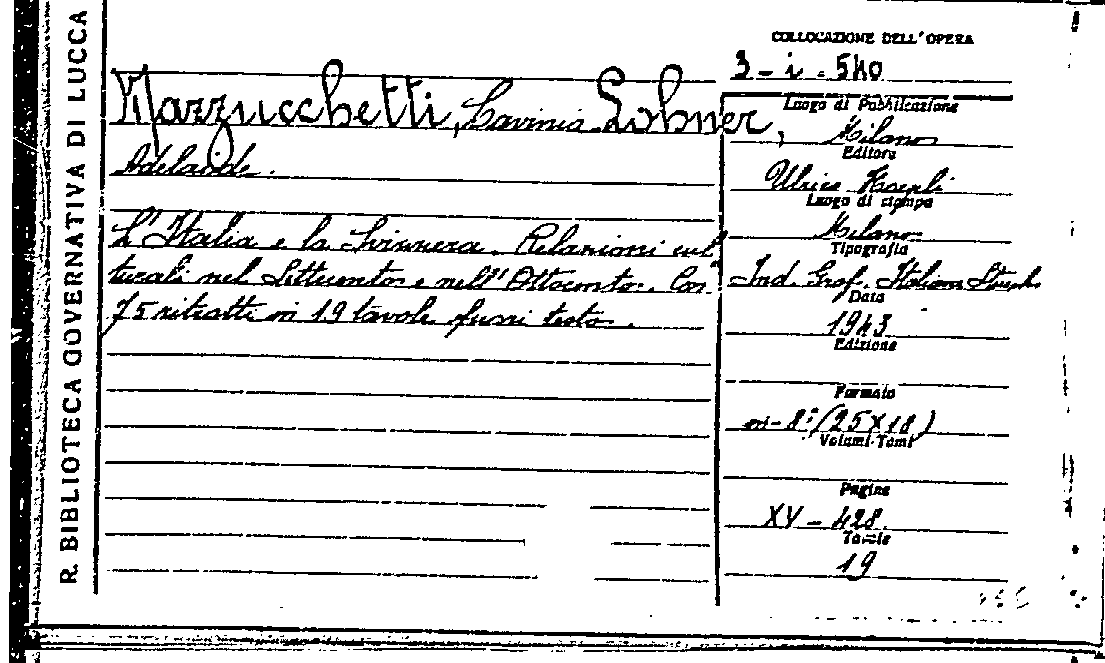 R. BIBLIOTECA GOVERNATIVA DI LUCCA
COLLOCAZIONE DELL'OPERA
3 - i - 540
Mazzucchetti, Lavinia Lohner,
Adelaide.
L'Italia e la Svizzera. Relazioni cul
turali nel Settecento e nell'Ottocento. Con
75 ritratti in 19 tavole fuori testo.
Luogo di Pubblicazione
Milano
Editore
Ulrico Hoepli
Luogo di stampa
Milano
Tipografia
Ind. Graf. Italiane
Data
1943
Edizione
Formato
in-8° (25X18)
Volumi-Tomi
Pagine
XV - 428
Tavole
19